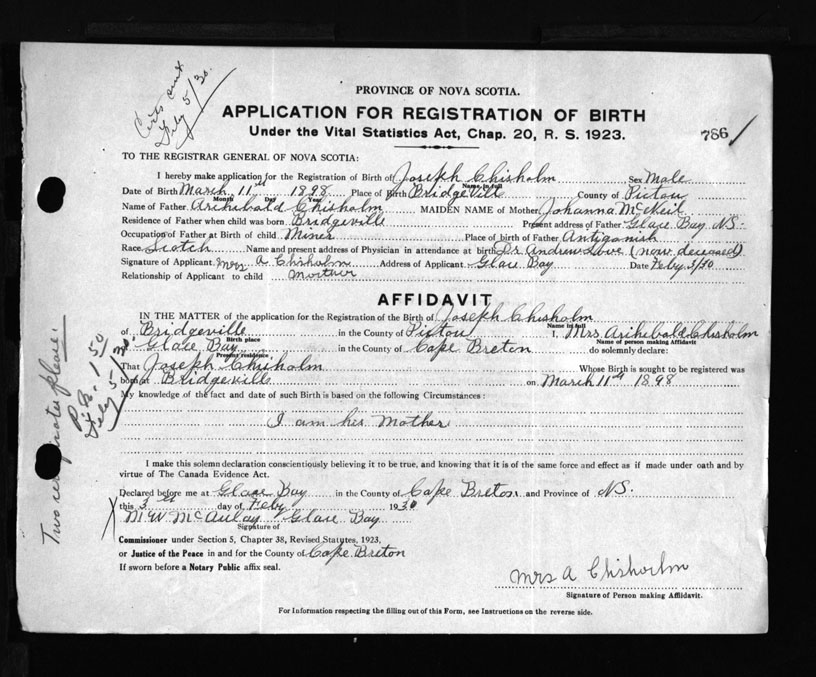 Certs sent
Feby 5/30.
PROVINCE OF NOVA SCOTIA.
APPLICATION FOR REGISTRATION OF BIRTH
Under the Vital Statistics Act, Chap. 20, R. S. 1923.
786
TO THE REGISTRAR GENERAL OF NOVA SCOTIA:
I hereby make application for the Registration of Birth of Joseph Chisholm Sex Male
Name in full
Date of Birth March 11th 1898 Place of Birth Bridgeville County of Pictou
Month Day Year
Name of Father Archibald Chisholm MAIDEN NAME of Mother Johanna McNeil
Residence of Father when child was born Bridgeville Present address of Father Glace Bay NS.
Occupation of Father at Birth of child Miner Place of birth of Father Antigonish
Race Scotch Name and present address of Physician in attendance at birth Dr Andrew Love (now deceased)
Signature of Applicant Mrs A Chisholm Address of Applicant Glace Bay Date Feby 3/30
Relationship of Applicant to child
AFFIDAVIT
IN THE MATTER of the application for the Registration of the Birth of Joseph Chisholm
Name in full
of Bridgeville in the County of Pictou I, Mrs Archibald Chisholm
Birth place Name of person making Affidavit
Glace Bay in the County of Cape Breton do solemnly declare:
Present residence
That Joseph Chisholm Whose Birth is sought to be registered was
born at Bridgeville on March 11th 1898
My knowledge of the fact and date of such Birth is based on the following Circumstances:
I am his Mother
I make this solemn declaration conscientiously believing it to be true, and knowing that it is of the same force and effect as if made under oath and by
virtue of The Canada Evidence Act.
Declared before me at Glace Bay in the County of Cape Breton and Province of NS.
this 3 day of Feby 1930
M W McAulay Glace Bay
Signature of
Commissioner under Section 5, Chapter 38, Revised Statutes, 1923,
or Justice of the Peace in and for the County of Cape Breton
If sworn before a Notary Public affix seal.
Mrs A Chisholm
Signature of Person making Affidavit.
For Information respecting the filling out of this Form, see Instructions on the reverse side.
Two certificates please.
1 50
Feby 5